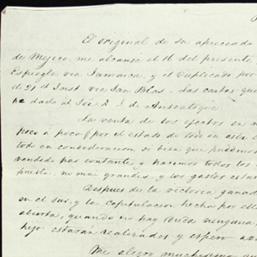 El original de su apreciada
de Mejico, me alcanzó el 11 del presente,
Espiegle via Jamaica, y el Duplicado por
de 91 d Inst. via San Blas. Las cartas que
he dado al Sor. D. J. de Ansoategui
La venta de los efectos en su
poco a poco, por el estado de todo en esta
todo en consideracion, se bien que puedmos
vendido pas contante, y hacemos todos los
pueblo, no mui grandes, y los gastos estan
Despues de la victoria ganada
en el sur, y la capitulacion hecha por ell
abierta, quando no hay ninguna
hijo estarán realizados y espero
Me alegro muchisimo